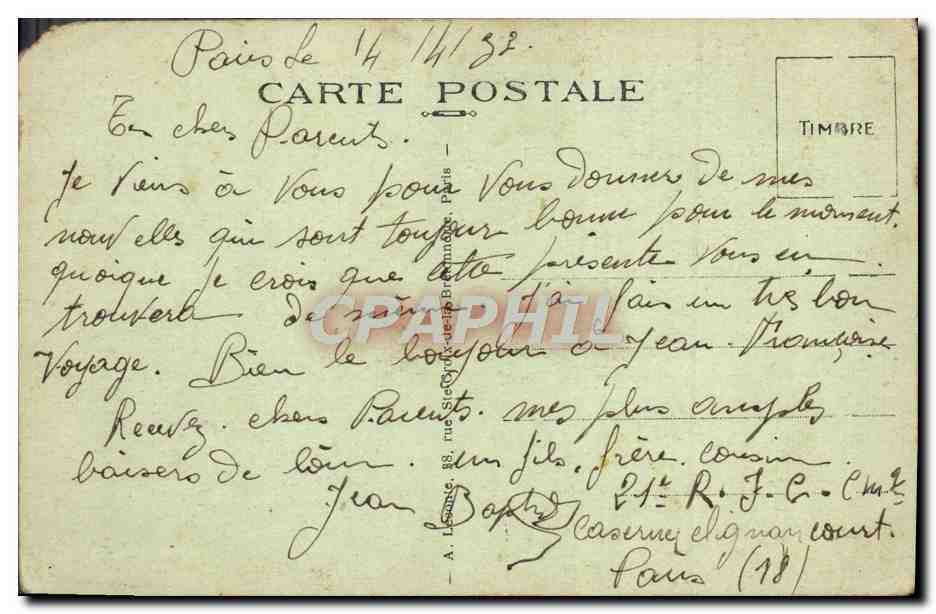 Paris Le 14/4/32.
CARTE POSTALE
TIMBRE
chers Parents.
Je viens à vous pour vous donner de mes
nouvelles qui sont toujour bonne pour le moment.
quoique je crois que cette présente vous en
trouvera de même. J'ai fais un très bon
voyage. Bien le bonjour à Jean. Françoise
Recevez. chers Parents. mes plus amples
baisers de loin. un fils, frère. cousin.
Jean Baptiste 21e R. I. C.
Caserne clignancourt.
Paris (18)
A. Leconte, 38, rue Ste-Croix-de-la-Bretonnerie, Paris
CPAPHIL